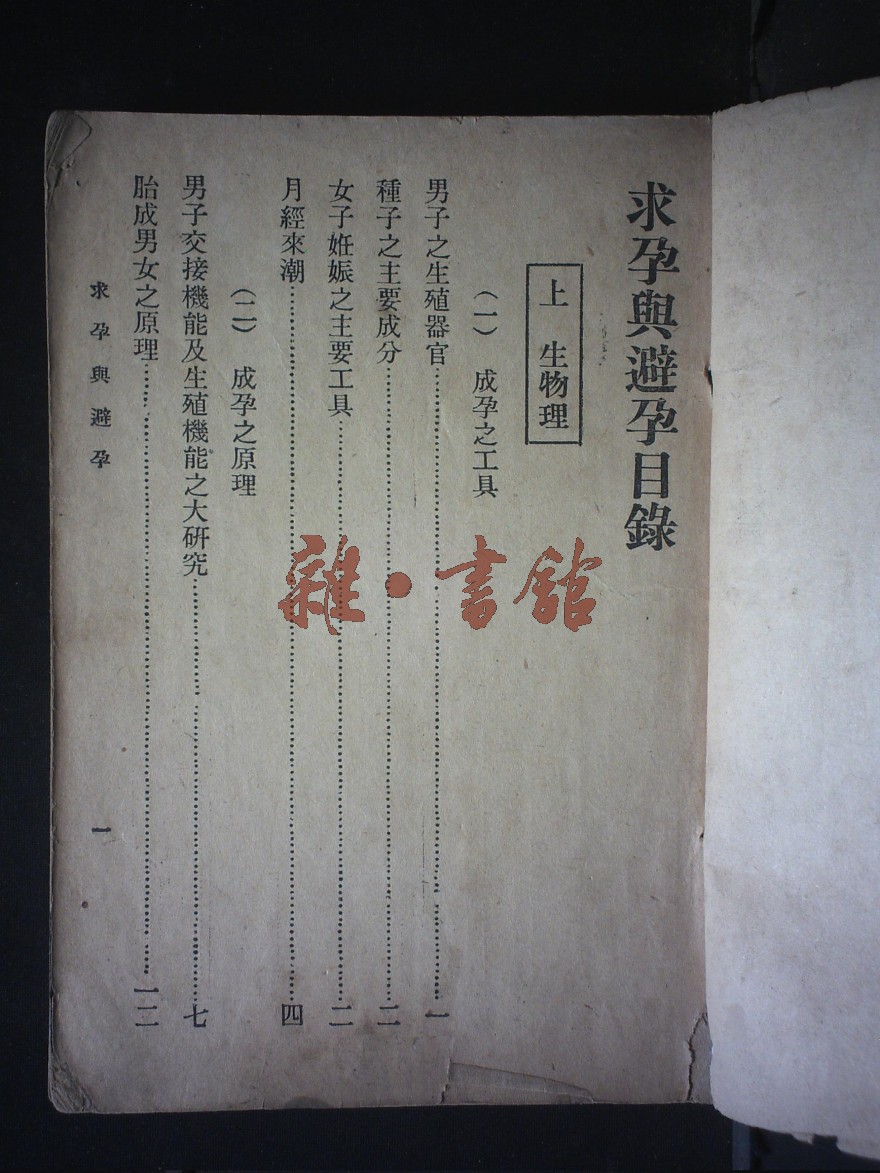 求孕與避孕目錄
上　生物理
（一）　成孕之工具
男子之生殖器官……一
種子之主要成分……二
女子姙娠之主要工具……二
月經來潮……四
（二）　成孕之原理
男子交接機能及生殖機能之大研究……七
胎成男女之原理……一二
求孕與避孕　一
雜・書館